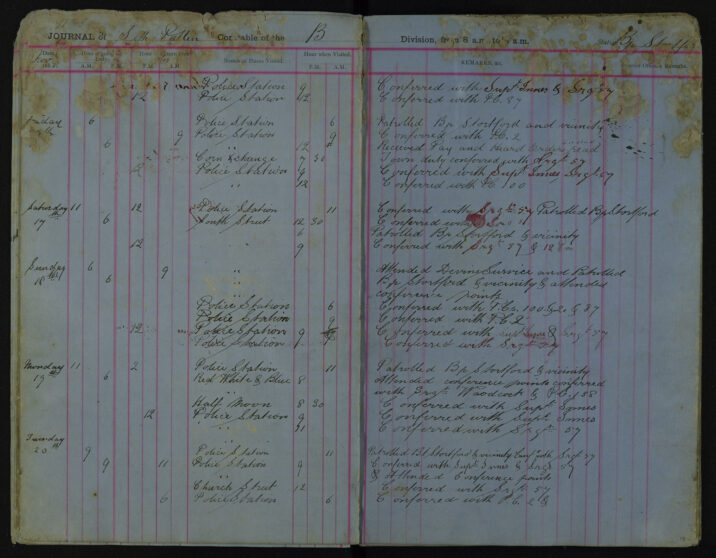 JOURNAL of Constable of the B Division, from 8 a.m. to a.m.
Nov
A.M. P.M. A.M. P.M. A.M.
Names of Places Visited.
Hour when Visited.
P.M. A.M.
REMARKS, &c.
Superior Officers Remarks.
Police Station 9 Conferred with Supt Innes & Srgt 57
12 Police Station 12 Conferred with P.C. 87
Friday 6 Police Station 6 Patrolled Bp Stortford and vicinity
9 Police Station 9 Conferred with P.C. 2
6 " 12 Received Pay and heard Orders read
Corn Exchange 7 30 Town duty conferred with Srgt 57
Police Station 9 Conferred with Supt Innes Srgt 57
" 12 Conferred with P.C. 100
Saturday 11 12 Police Station 11 Conferred with Srgt 57 Patrolled Bp Stortford
17 6 South Street 12 30 Conferred with
" 6 Patrolled Bp Stortford & vicinity
12 " 9 Conferred with Srgt 57 &
Sunday 6 9 " Attended Divine Service and Patrolled
18 6 " Bp Stortford & vicinity & attended
conference points
Police Station 6 Conferred with P.Cs. 100 & 2 & 87
Police Station 9 Conferred with P.C. 2
12 Police Station 9 Conferred with Supt Innes & Srgt 57
Police Station Conferred with Srgt 57
Monday 11 2 Police Station 11 Patrolled Bp Stortford & vicinity
19 6 Red White & Blue 8 Attended conference points conferred
with Srgt Woodcock & P.C. 58
Half Moon 8 30 Conferred with Supt Innes
12 Police Station 9 Conferred with Supt Innes
" 11 Conferred with Srgt 57
Tuesday
20 9 Police Station 11 Patrolled Bp Stortford & vicinity Conf with Srgt 57
9 11 Police Station 9 Conferred with Supt Innes & Srgt 57
" & Attended Conference points
Church Street 12 Conferred with Srgt 57
6 Police Station 6 Conferred with P.C. 2